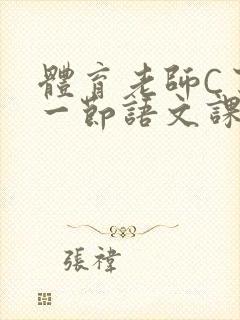 體育老師C
一節語文課
張禕